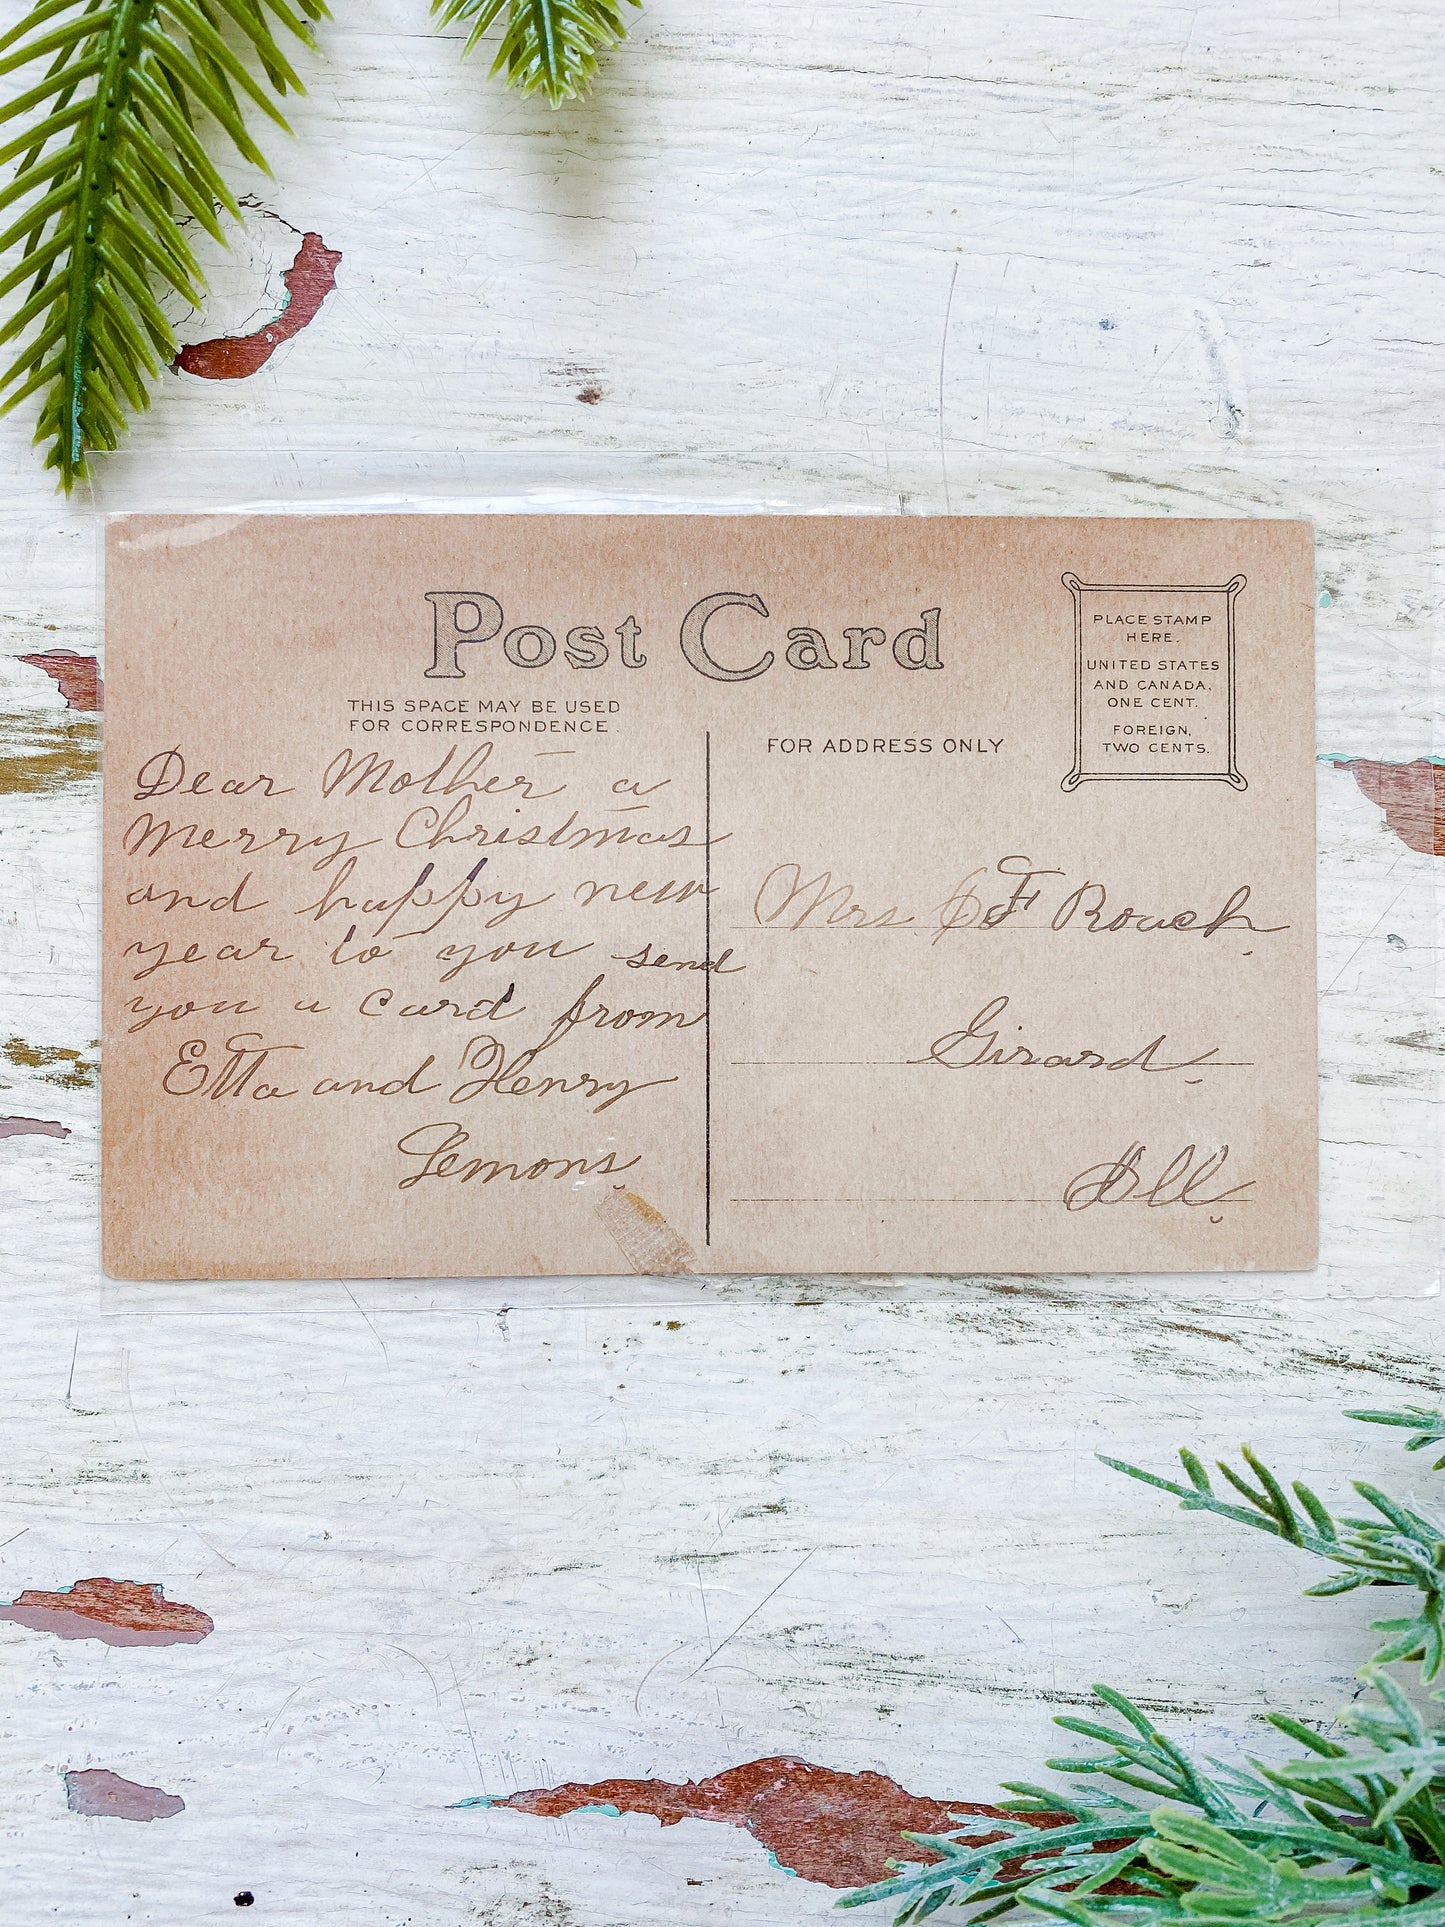 Post Card
THIS SPACE MAY BE USED
FOR CORRESPONDENCE.
Dear Mother a
Merry Christmas
and happy new
year to you send
you a card from
Etta and Henry
Lemons.
FOR ADDRESS ONLY
PLACE STAMP
HERE.
UNITED STATES
AND CANADA,
ONE CENT.
FOREIGN,
TWO CENTS.
Mrs. F Roach.
Girard.
Ill.